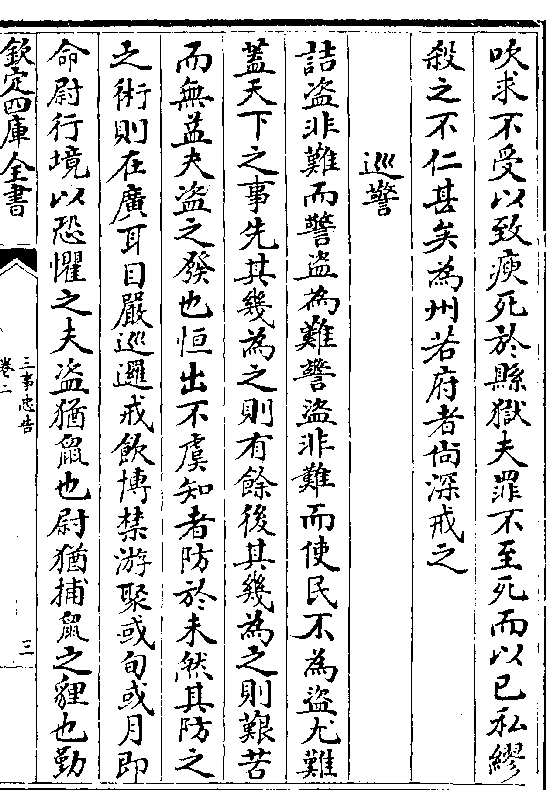 吹求不受以致瘐死於縣獄夫罪不至死而以已私繆
殺之不仁甚矣為州若府者尚深戒之
巡警
詰盗非難而警盗為難警盗非難而使民不為盗尤難
蓋天下之事先其幾為之則有餘後其幾為之則艱苦
而無益夫盗之發也恒出不虞知者防於未然其防之
之術則在廣耳目嚴巡邏戒飲博禁游聚或旬或月即
命尉行境以恐懼之夫盗猶鼠也尉猶捕鼠之貍也勤
欽定四庫全書
三事忠告
卷二
三